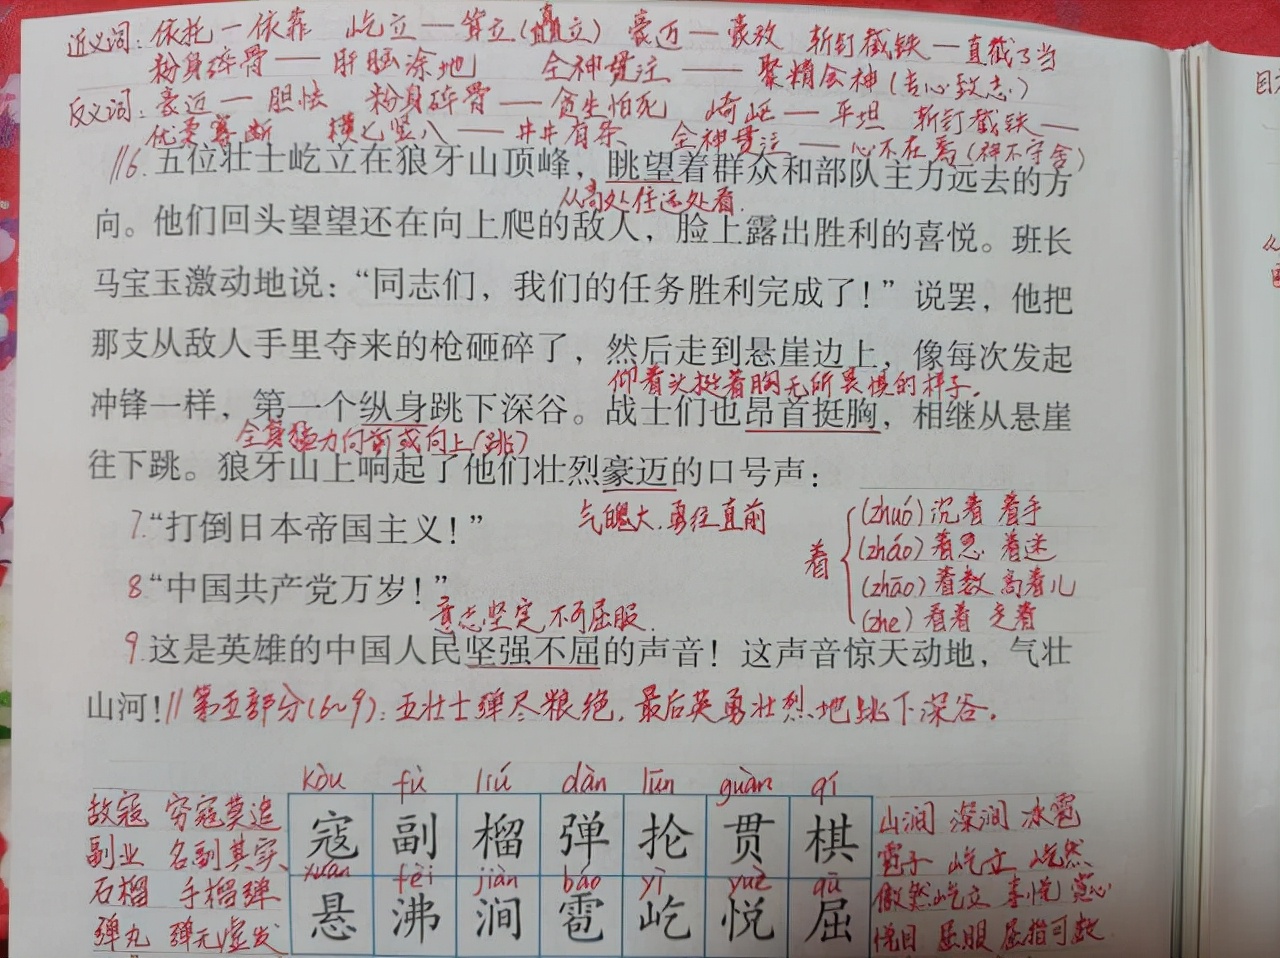 近义词：依托—依靠 屹立—耸立（矗立） 豪迈—豪放 斩钉截铁—直截了当
粉身碎骨——肝脑涂地 全神贯注——聚精会神（专心致志）
反义词：豪迈—胆怯 粉身碎骨——贪生怕死 崎岖—平坦 斩钉截铁—
优柔寡断 横七竖八——井井有条 全神贯注——心不在焉（神不守舍）
//6.五位壮士屹立在狼牙山顶峰，眺望着群众和部队主力远去的方
从高处往远处看.
向。他们回头望望还在向上爬的敌人，脸上露出胜利的喜悦。班长
马宝玉激动地说：“同志们，我们的任务胜利完成了！”说罢，他把
那支从敌人手里夺来的枪砸碎了，然后走到悬崖边上，像每次发起
仰着头挺着胸无所畏惧的样子.
冲锋一样，第一个纵身跳下深谷。战士们也昂首挺胸，相继从悬崖
全身猛力向前或向上（跳）
往下跳。狼牙山上响起了他们壮烈豪迈的口号声：
气魄大,勇往直前
7.“打倒日本帝国主义！”
8“中国共产党万岁！”
着
(zhuó) 沉着 着手
(zháo) 着急 着迷
(zhāo) 着数 高着儿
(zhe) 看着 走着
意志坚定 不可屈服.
9.这是英雄的中国人民坚强不屈的声音！这声音惊天动地，气壮
山河！//第五部分（6~9）：五壮士弹尽粮绝，最后英勇壮烈地跳下深谷.
kòu fù liú dàn lūn guàn qí
寇 副 榴 弹 抡 贯 棋
xuán fèi jiàn báo yì yuè qū
悬 沸 涧 雹 屹 悦 屈
敌寇 穷寇莫追
副业 名副其实
石榴 手榴弹
弹丸 弹无虚发
山涧 深涧 冰雹
雹子 屹立 屹然
傲然屹立 喜悦 赏心
悦目 屈服 屈指可数